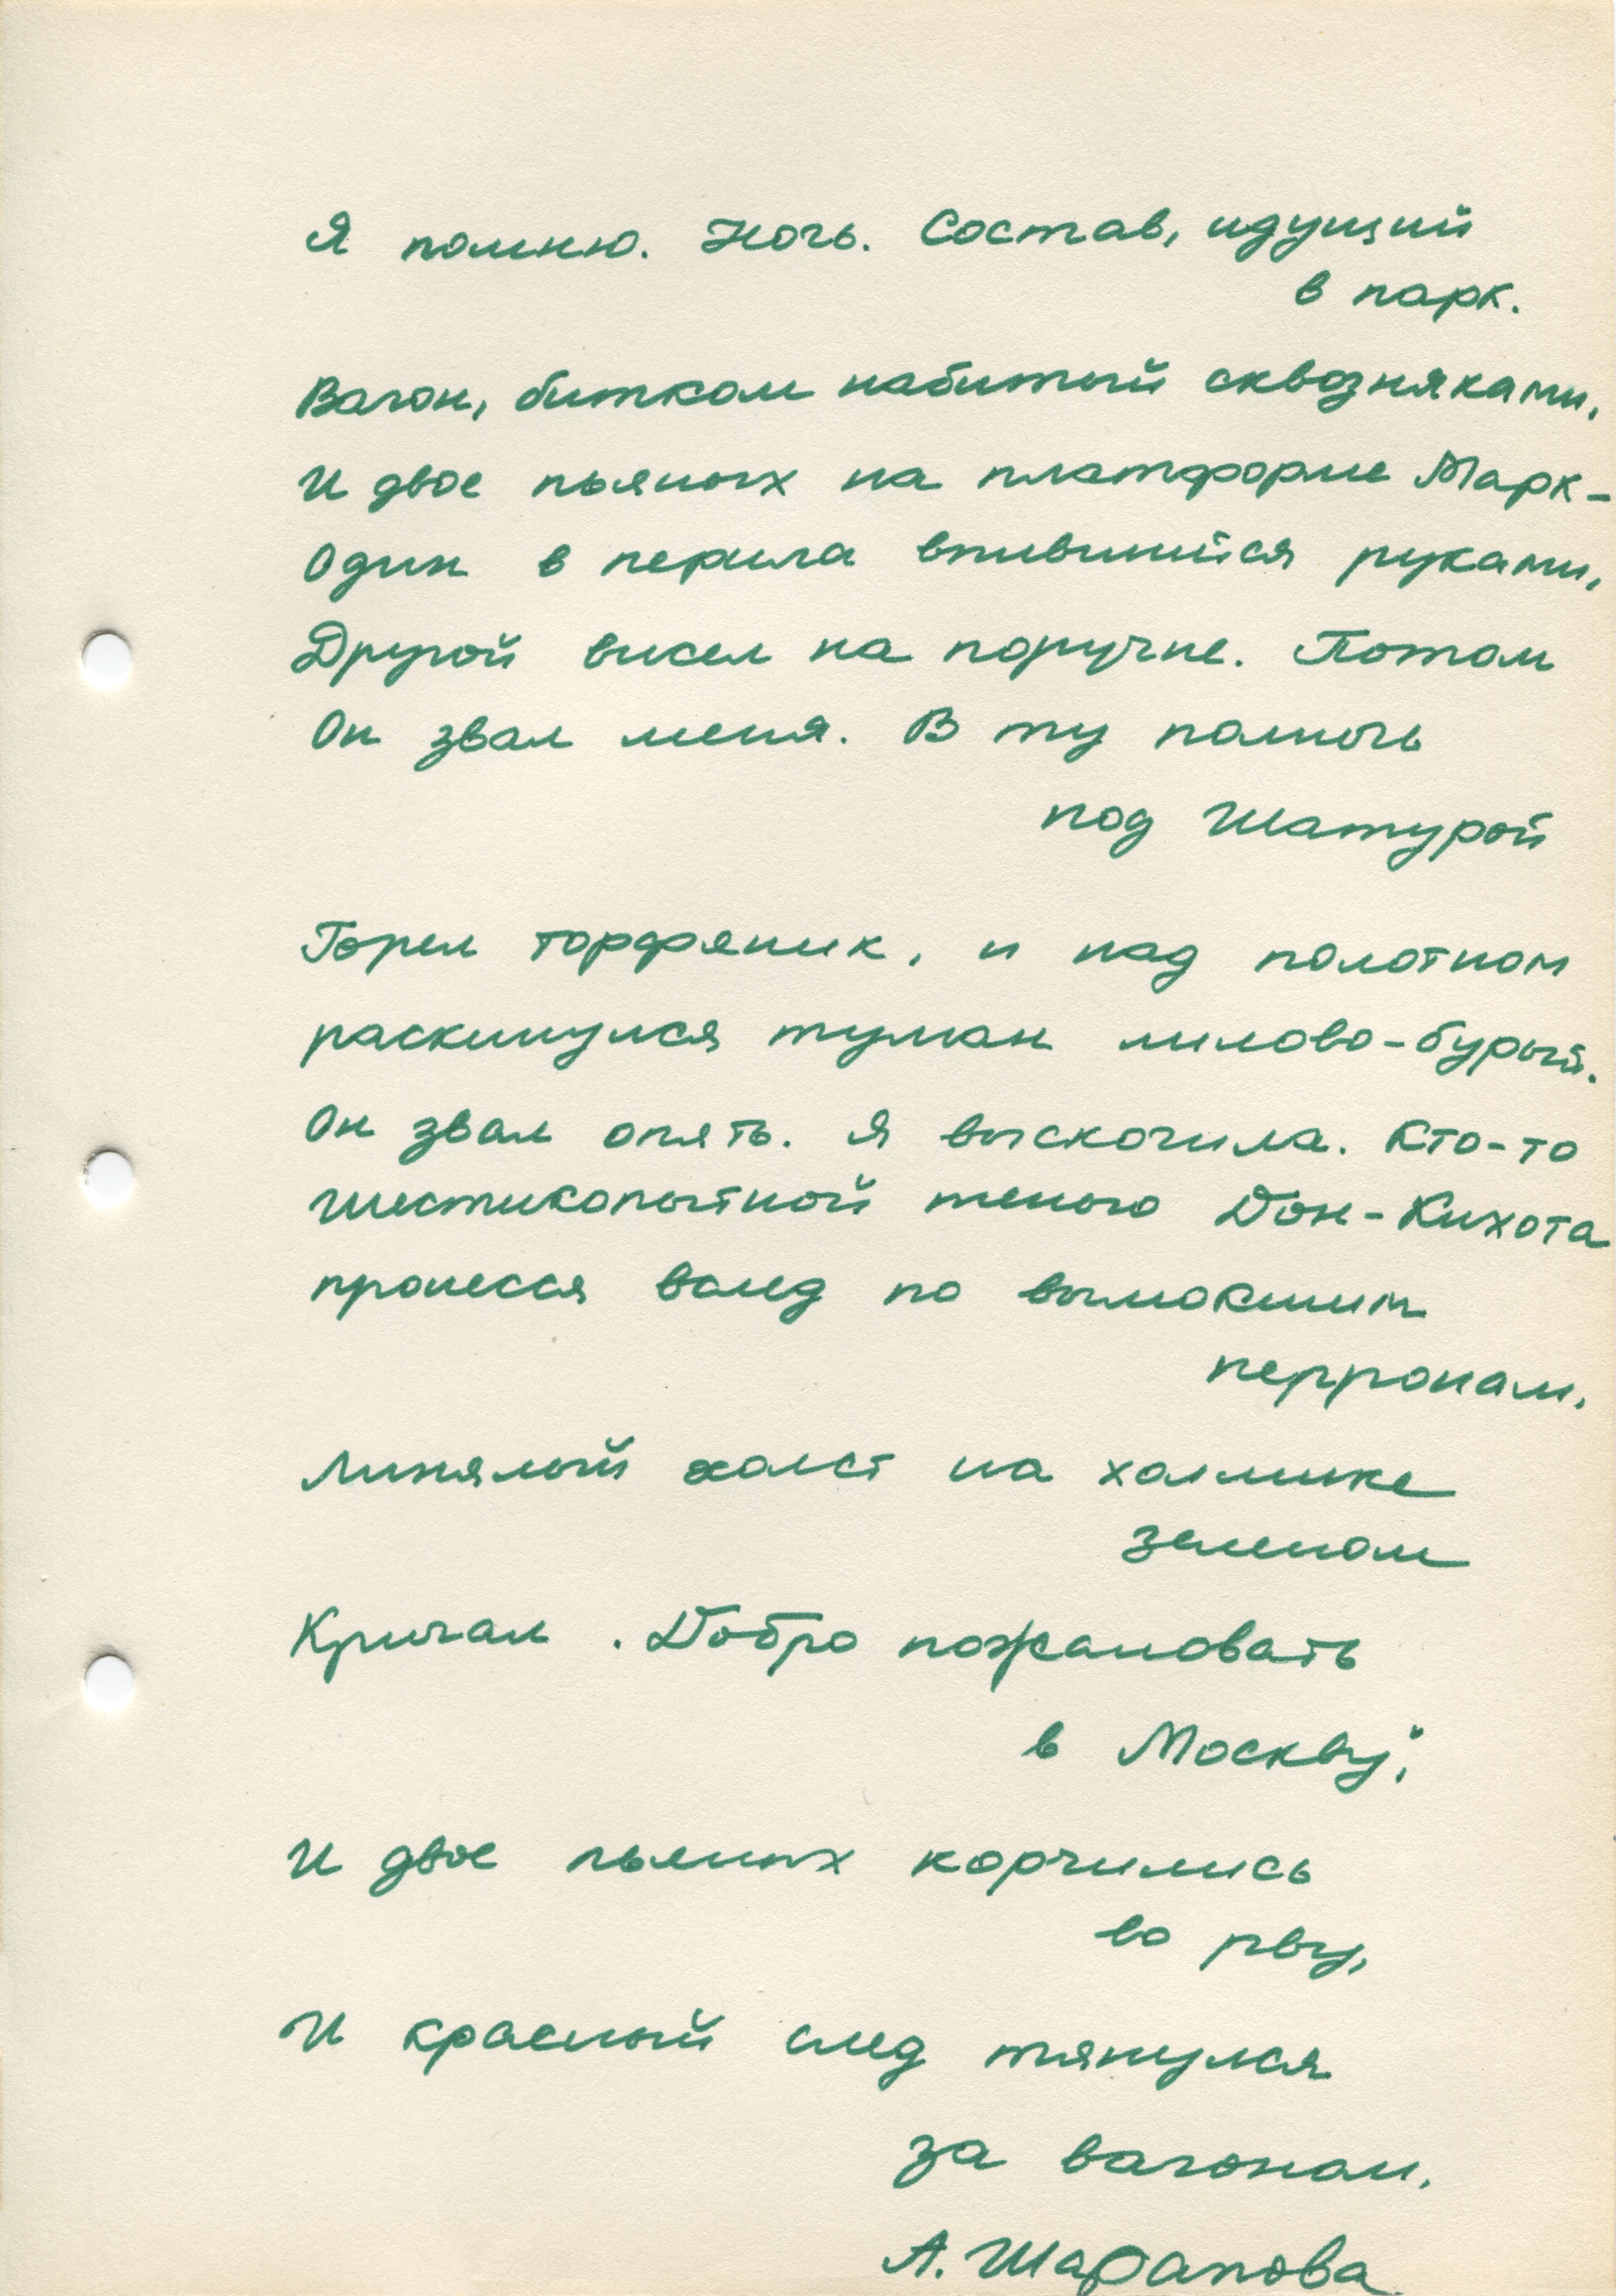 Я помню. Ночь. Состав, идущий
в парк.
Вагон, битком набитый сквозняками,
И двое пьяных на платформе Марк-
Один в перила впившийся руками,
Другой висел на поручне. Потом
Он звал меня. В ту полночь
под Шатурой
Горел торфяник, и над полотном
раскинулся туман лилово-бурый.
Он звал опять. Я выскочила. Кто-то
шестикопытной тенью Дон-Кихота
пронесся вслед по вымокшим
перронам.
Линялый холст на холмике
зеленом
Кричал. Добро пожаловать
в Москву",
И двое пьяных корчились
во рву,
И красный след тянулся
за вагоном.
А. Шарапова